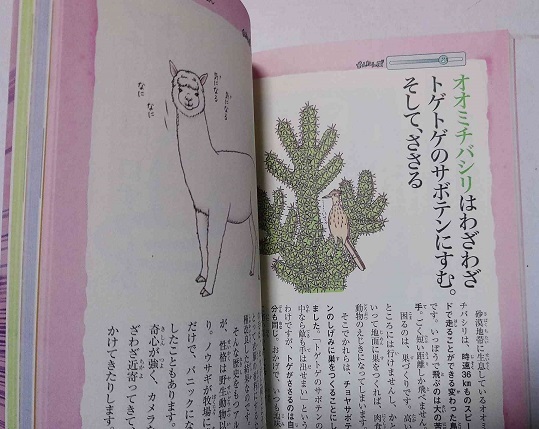 オオミチバシリはわざわざ
トゲトゲのサボテンにすむ。
そして、ささる
砂漠地帯に生息しているオオミ
チバシリは、時速36kmものスピー
ドで走ることができる変わった鳥
です。いっぽうで飛ぶのは大の苦
手。ごく短い距離しか飛べません。
困るのは、巣づくりです。高
ところには行けませんし、かと
いって地面に巣をつくれば、肉食
動物のえじきになってしまいます。
そこでかれらは、チョヤサボテ
ンのしげみに巣をつくることにし
ました。「トゲトゲのサボテンの
中なら敵も手出せまい」という
わけですが、トゲがささるのは自
分も同じ。おかげで、いつも
なに
なに
なに
きになる
きになる
が、性格は野生動物以
り、ノウサギが牧場に
だけで、パニックにな
したこともあります。
奇心が強く、カメラ
ざわざ近寄ってきて、
かけてきたりします。